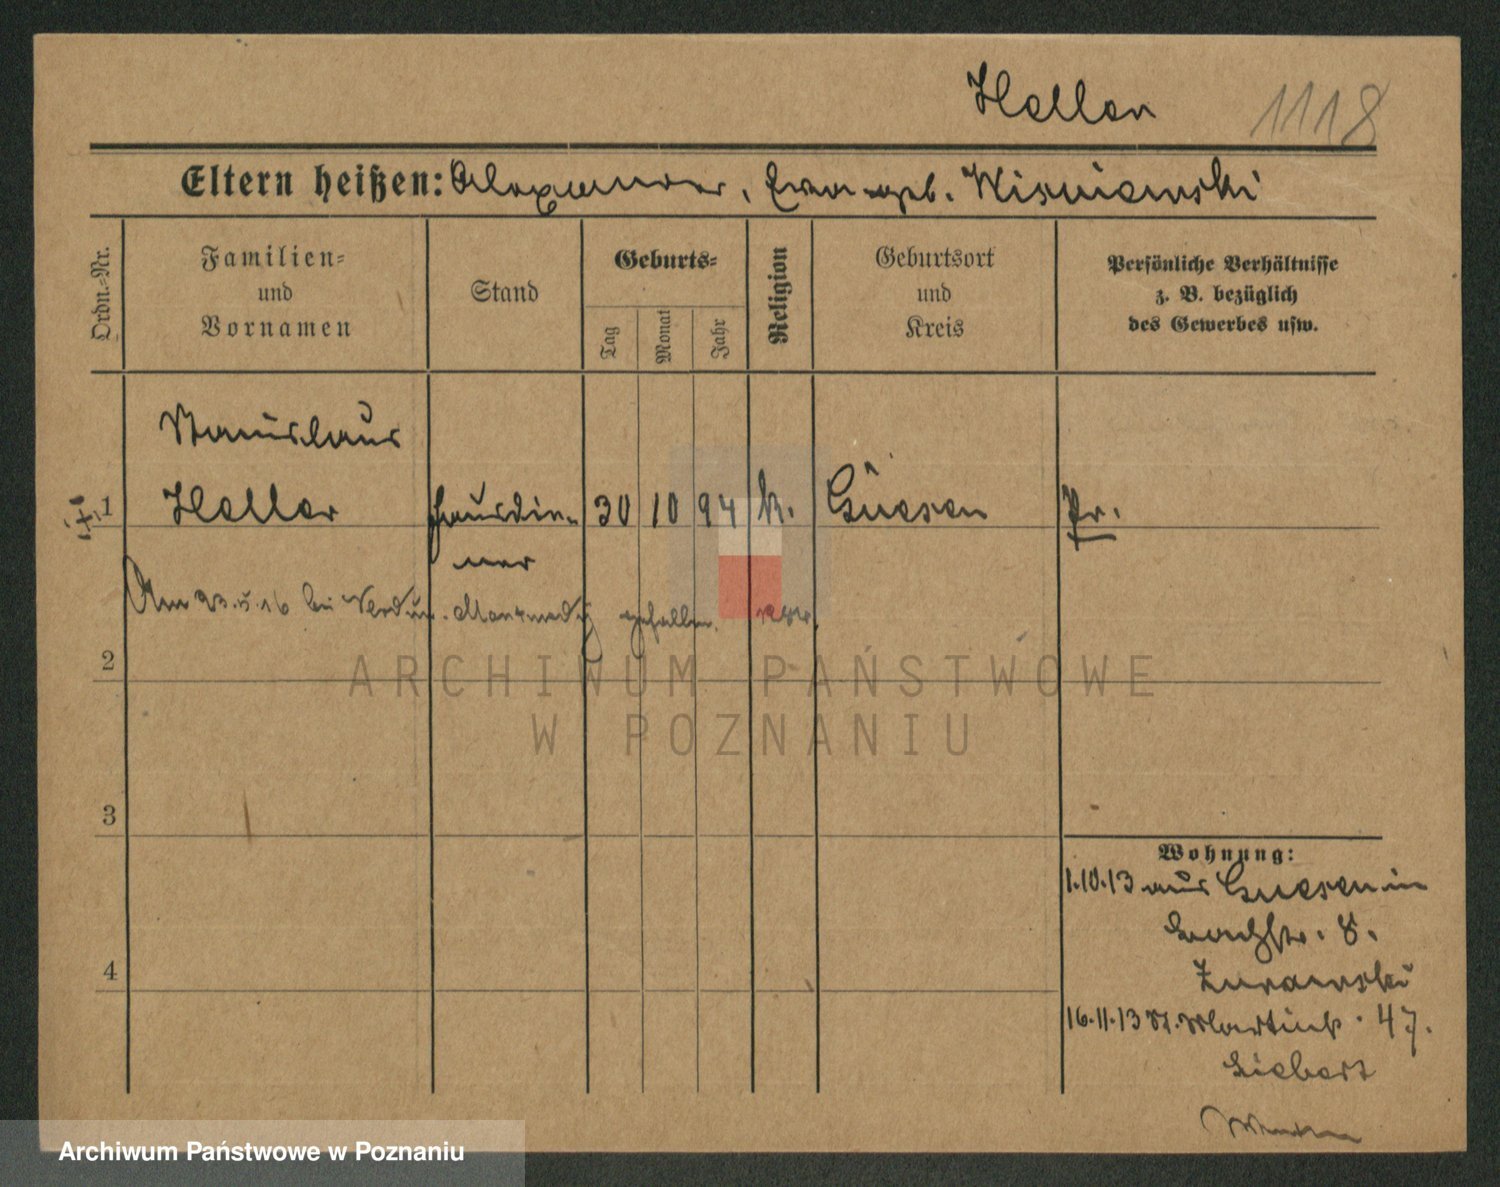 Heller
1118
Eltern heißen: Alexander, Eva geb. Wisniewski
Ordn.-Nr.
Familien-
und
Vornamen
Stand
Geburts-
Tag
Monat
Jahr
Religion
Geburtsort
und
Kreis
Persönliche Verhältnisse
z. B. bezüglich
des Gewerbes usw.
Stanislaus
1
Heller
Hausdie-
ner
30
10
94
k.
Gnesen
Pr.
Am 23.5.16 bei Verdun gefallen.
2
ARCHIWUM PAŃSTWOWE
W POZNANIU
3
4
Wohnung:
1.10.13 aus Gnesen in
8.
Zurawski
16.11.13 St. Martinstr. 47.
Siebert
Archiwum Państwowe w Poznaniu